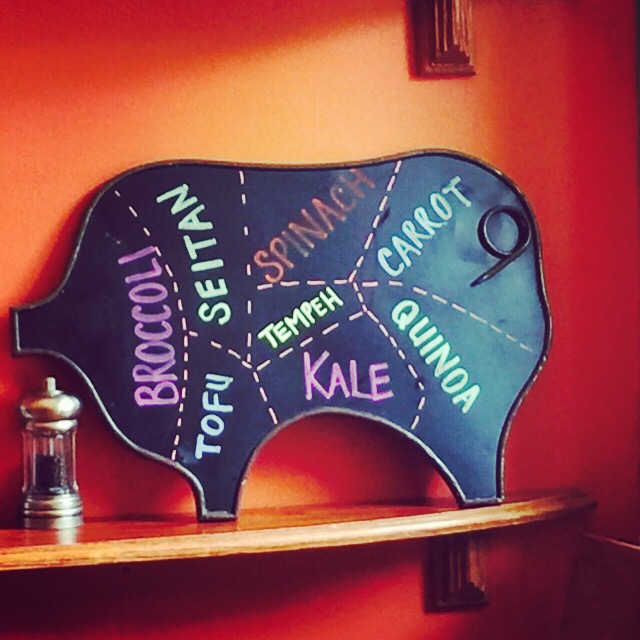 BROCCOLI
SEITAN
TOFU
SPINACH
TEMPEH
KALE
CARROT
QUINOA